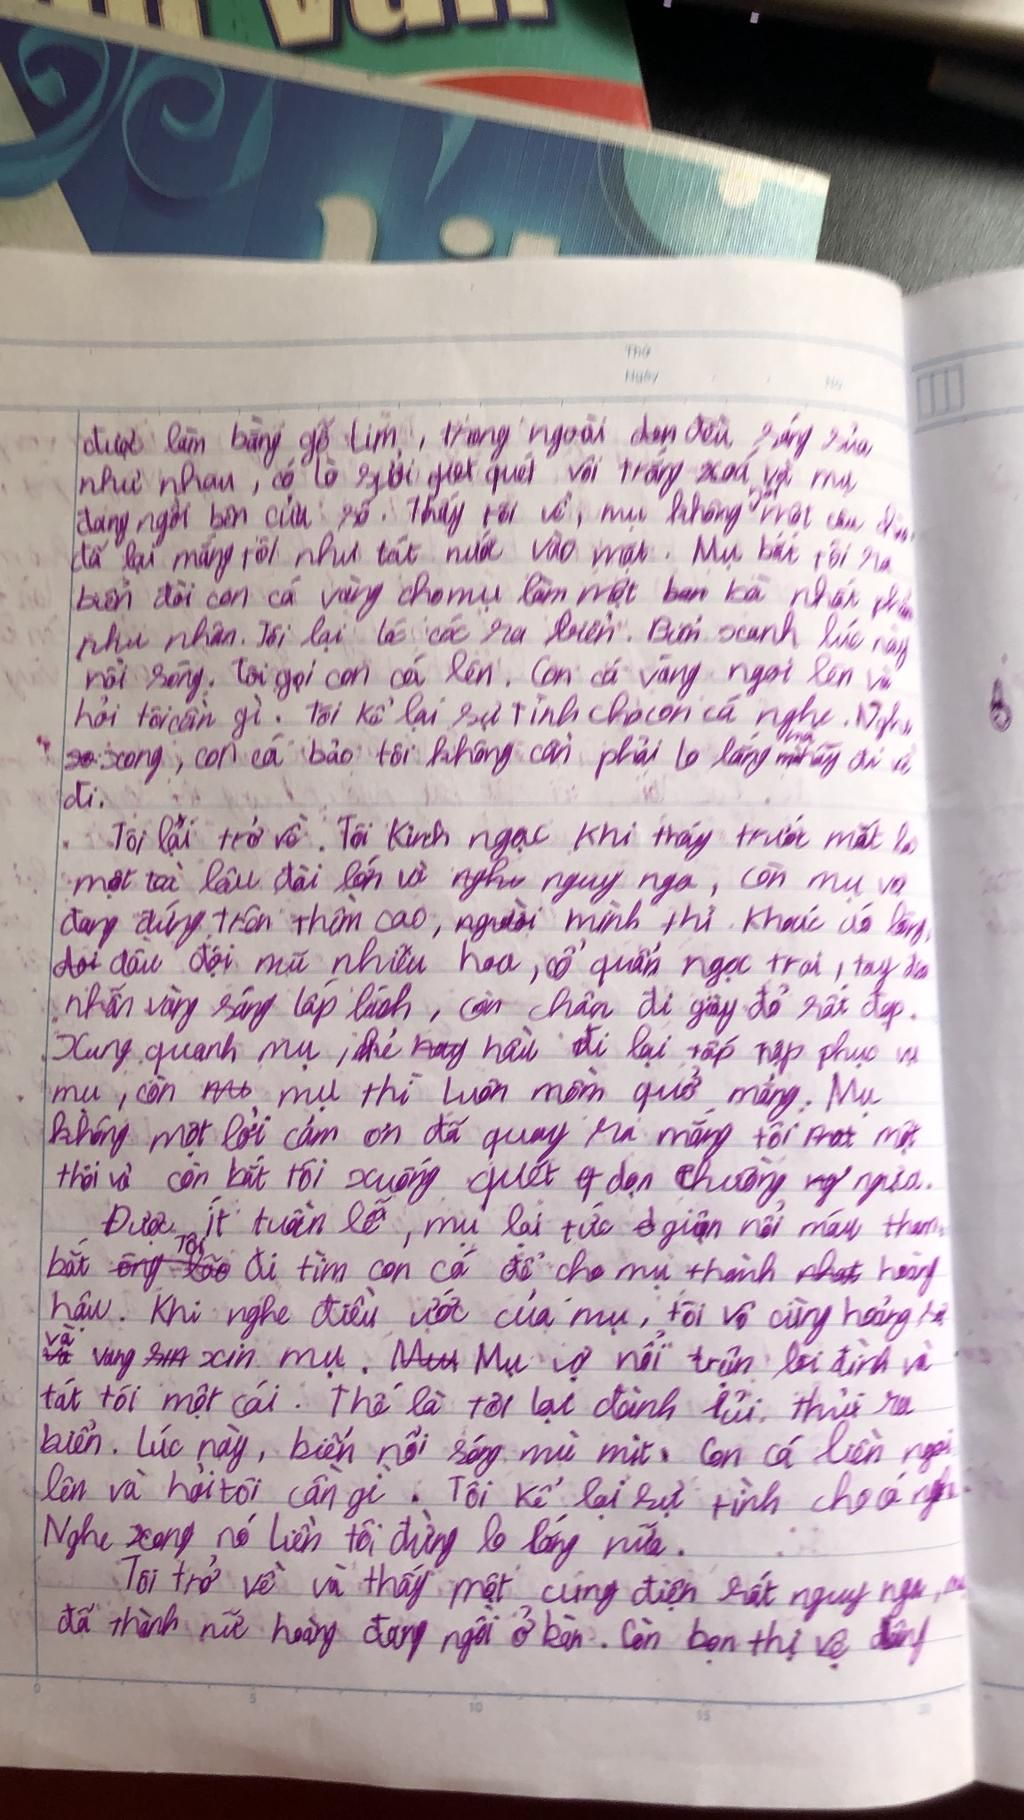 văn
Thứ
Ngày
No
được làm bằng gỗ lim, trong ngoài dọn đều sáng sủa
như nhau, có lò sưởi quét vôi trắng xoá vợ mụ
đang ngồi bên cửa sổ. Thấy tôi về, mụ không một câu
đã lại mắng tôi như tát nước vào mặt. Mụ bắt tôi ra
biển đòi con cá vàng cho mụ làm một bà nhất phẩm
phu nhân. Tôi lại lóc cóc ra biển. Biển xanh lúc này
nổi sóng. Tôi gọi con cá lên. Con cá vàng ngoi lên và
hỏi tôi cần gì. Tôi kể lại sự tình cho con cá nghe. Nghe
xong, con cá bảo tôi không cần phải lo lắng mà hãy đi về
đi.
Tôi lại trở về. Tôi kinh ngạc khi thấy trước mắt là
một toà lâu đài lớn và nguy nga, còn mụ vợ
đang đứng trên thềm cao, người mình thì khoác áo lông,
đầu đội mũ nhiều hoa, cổ quấn ngọc trai, tay đeo
nhẫn vàng sáng lấp lánh, còn chân đi giày đỏ rất đẹp.
Xung quanh mụ, kẻ hầu đi lại tấp nập phục vụ
mụ, còn mụ thì luôn mồm quở mắng. Mụ
không một lời cảm ơn đã quay ra mắng tôi một
thôi và còn bắt tôi xuống quét dọn chuồng ngựa.
Được ít tuần lễ, mụ lại tức giận nổi máu tham
bắt tôi đi tìm con cá để cho mụ thành hoàng
hậu. Khi nghe điều ước của mụ, tôi vô cùng hoảng sợ
và vang xin mụ. Mụ vợ nổi trận lôi đình và
tát tôi một cái. Thế là tôi lại đành lủi thủi ra
biển. Lúc này, biển nổi sóng mù mịt. Con cá liền ngoi
lên và hỏi tôi cần gì. Tôi kể lại sự tình cho cá nghe.
Nghe xong nó liền tôi đừng lo lắng nữa.
Tôi trở về và thấy một cung điện rất nguy nga, mụ
đã thành nữ hoàng đang ngồi ở bàn. Còn bọn thị vệ đứng
0 5 10 15 20